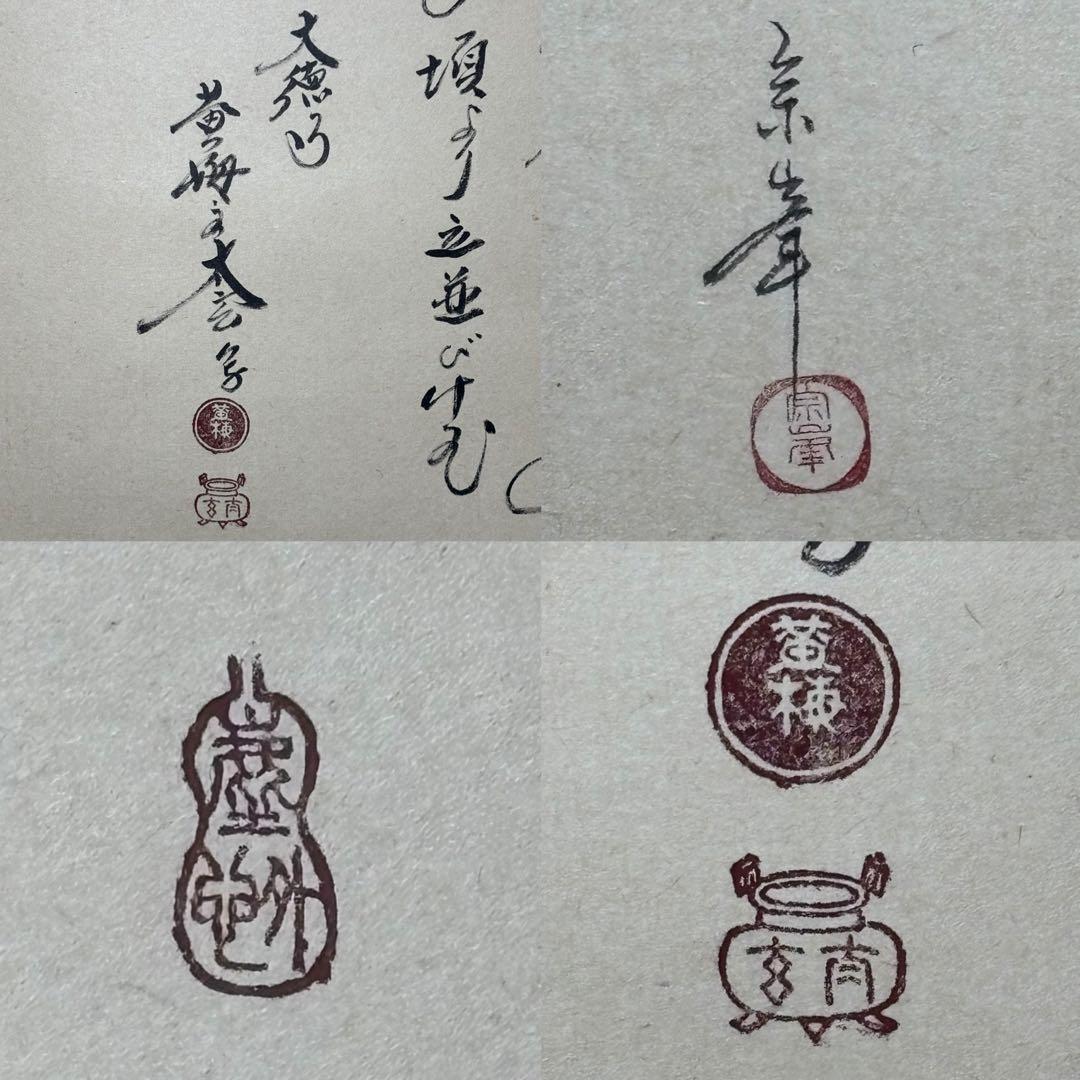 頃より立並びけむ
大徳寺
黄梅主太玄
黄梅
玄
宗峯
宗峯
塵外
黄梅
玄